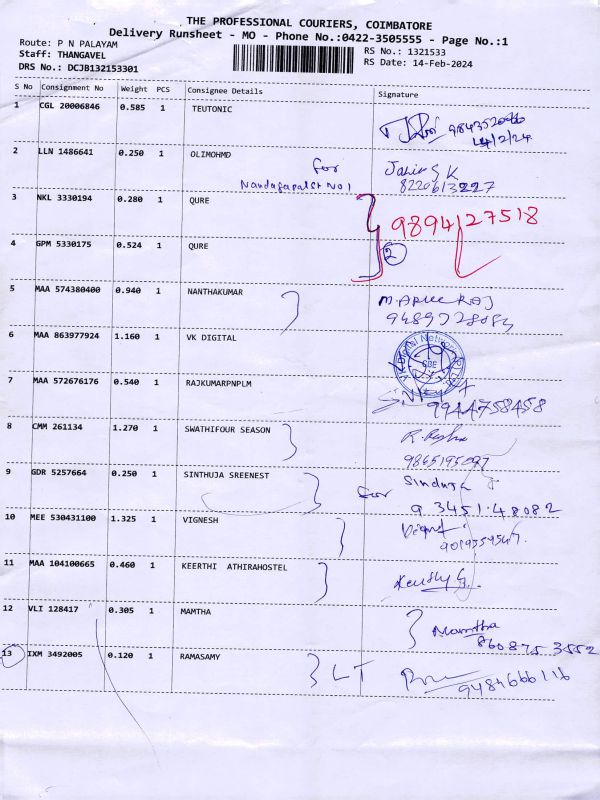 THE PROFESSIONAL COURIERS, COIMBATORE
Delivery Runsheet - MO - Phone No.:0422-3505555 - Page No.:1
Route: P N PALAYAM
Staff: THANGAVEL
DRS No.: DCJB132153301
RS No.: 1321533
RS Date: 14-Feb-2024
S No Consignment No Weight PCS Consignee Details Signature
1 CGL 20006846 0.585 1 TEUTONIC
14/2/24
2 LLN 1486641 0.250 1 OLIMOHMD for
Nandagopal st No 1 8220613227
3 NKL 3330194 0.280 1 QURE 9894127518
4 GPM 5330175 0.524 1 QURE 2
5 MAA 574380400 0.940 1 NANTHAKUMAR
6 MAA 863977924 1.160 1 VK DIGITAL
7 MAA 572676176 0.540 1 RAJKUMARPNPLM
9944758458
8 CMM 261134 1.270 1 SWATHIFOUR SEASON
9 GDR 5257664 0.250 1 SINTHUJA SREENEST for Sinduja
93451.48082
10 MEE 530431100 1.325 1 VIGNESH
11 MAA 104100665 0.460 1 KEERTHI ATHIRAHOSTEL
12 VLI 128417 0.305 1 MAMTHA Mamtha
860875 3552
13 IXM 3492005 0.120 1 RAMASAMY LT
9484666116